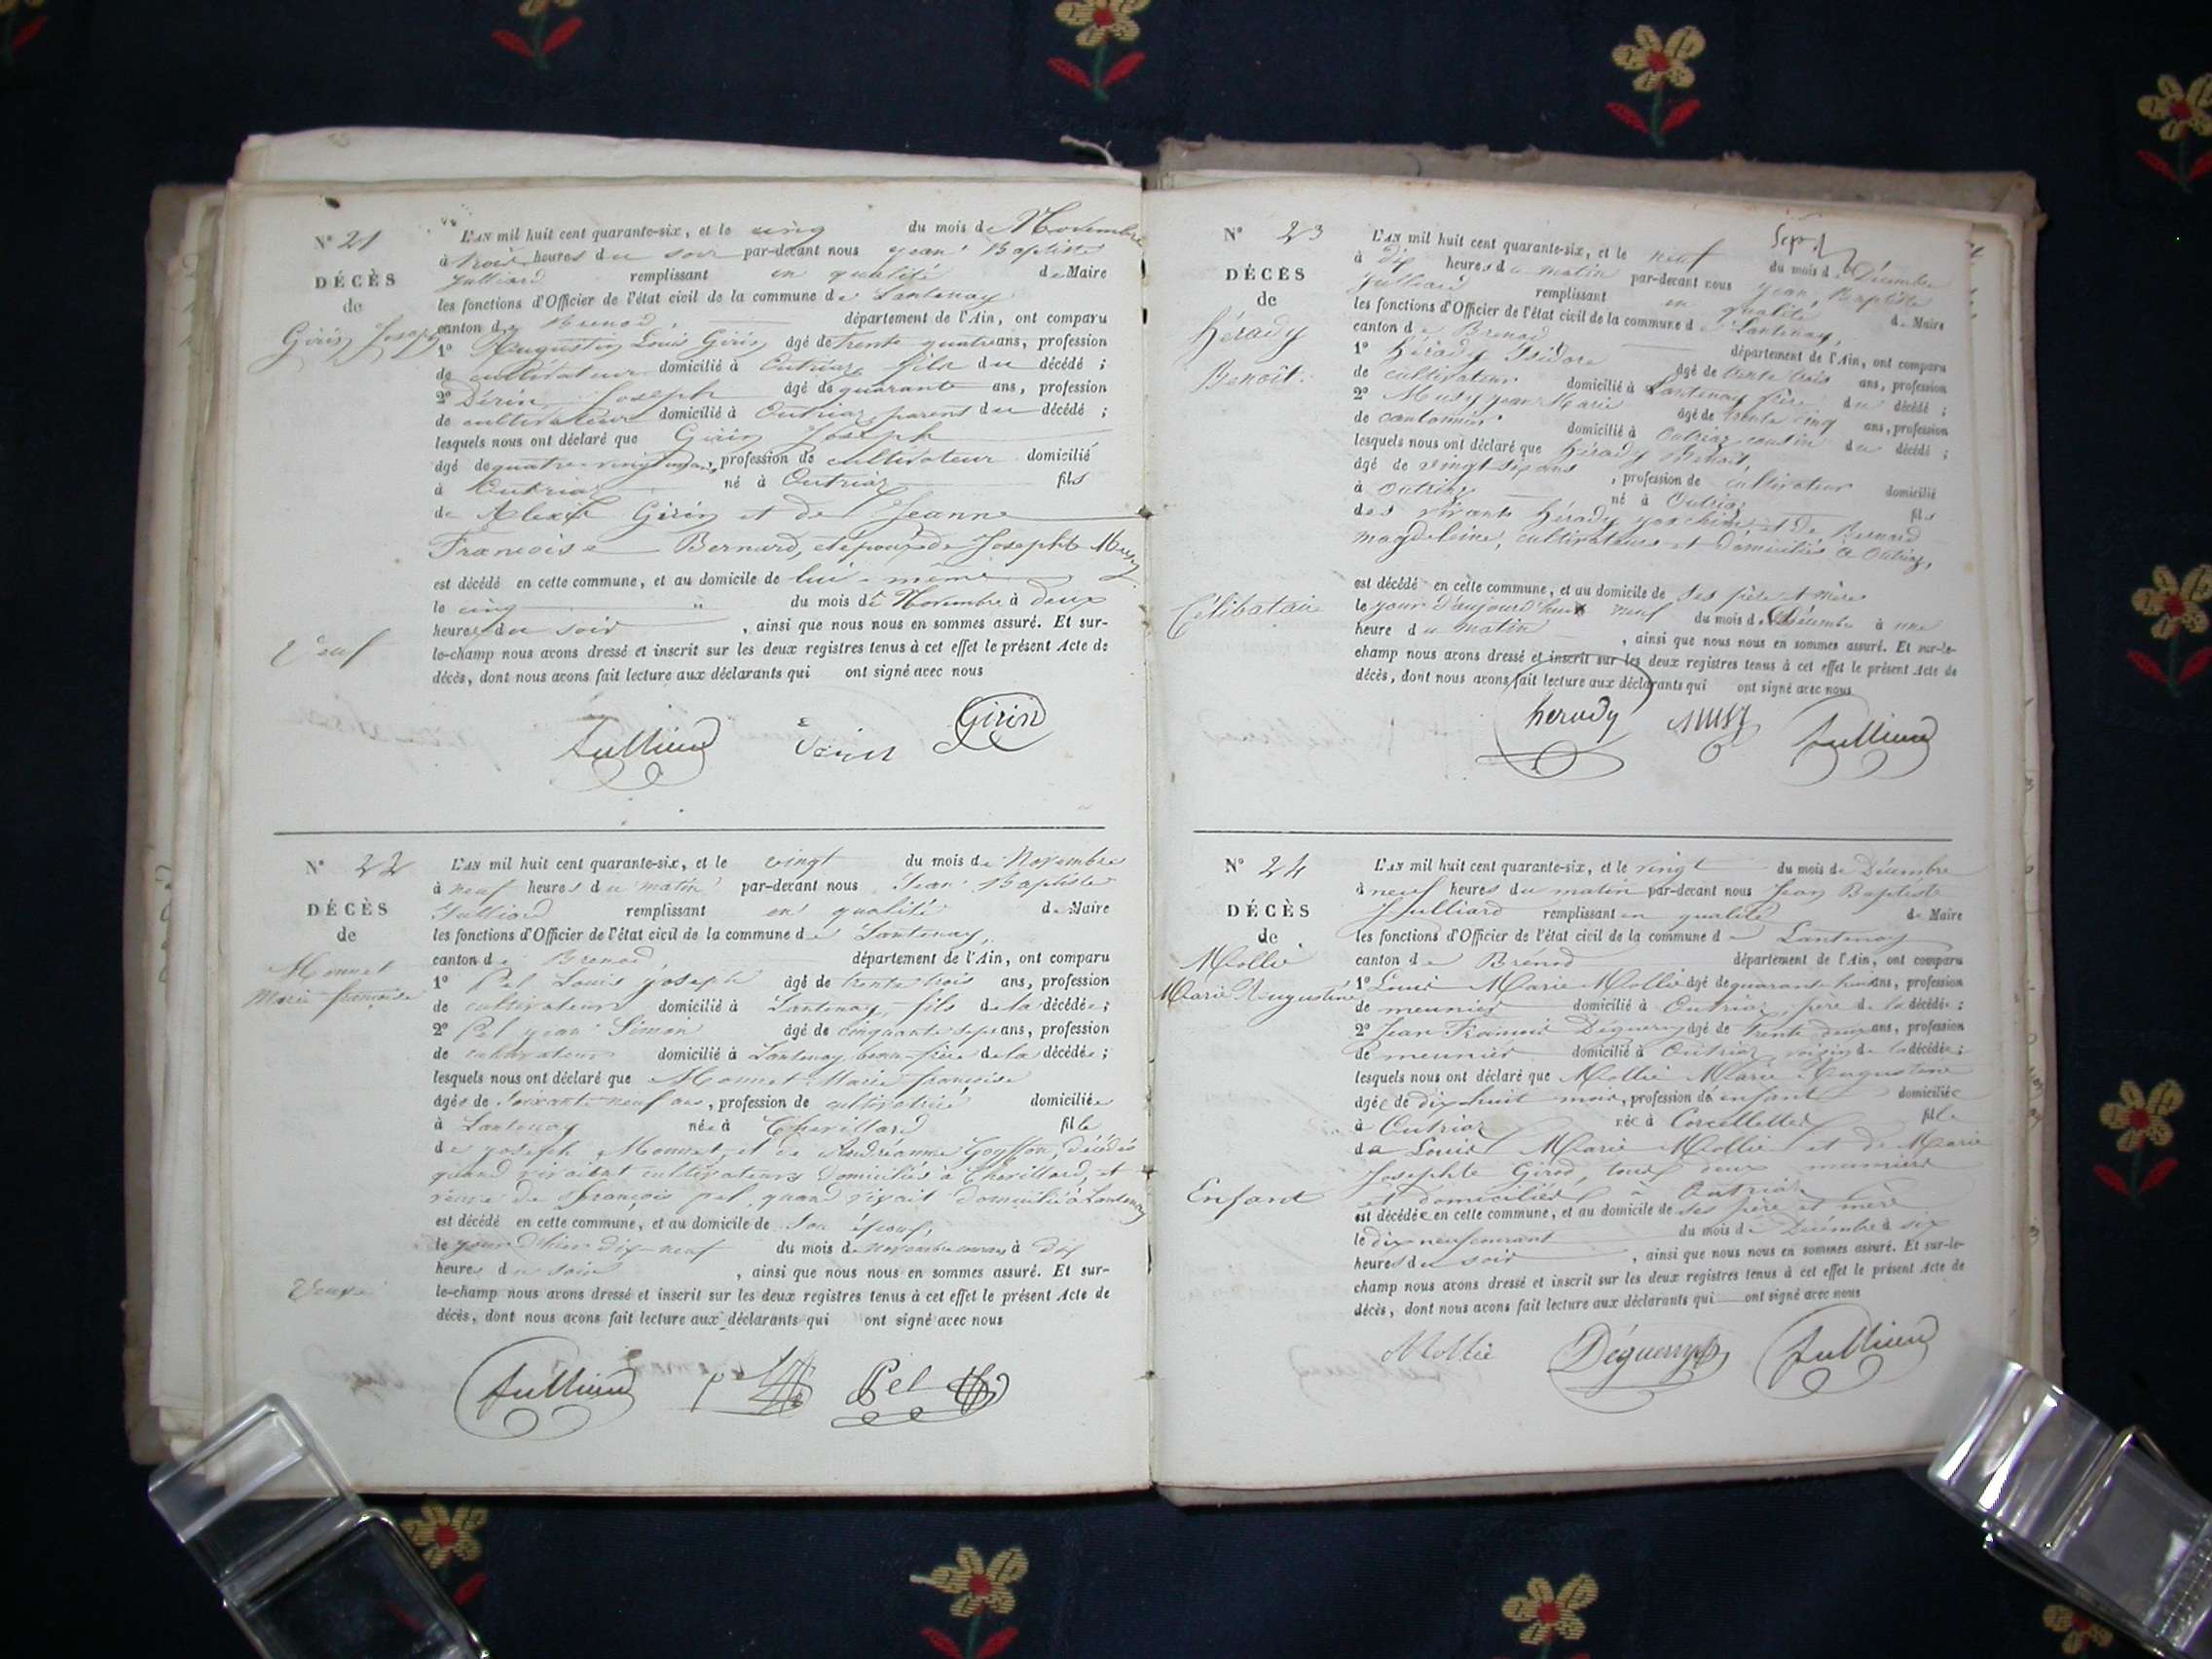 N° 21
DÉCÈS
de
Girin Joseph
Veuf
L'AN mil huit cent quarante-six, et le cinq du mois de Novembre
à trois heures du soir par-devant nous Jean Baptiste
Julliard remplissant en qualité de Maire
les fonctions d'Officier de l'état civil de la commune de Lantenay
canton de Brenod, département de l'Ain, ont comparu
1° Augustin Louis Girin âgé de trente quatre ans, profession
de cultivateur domicilié à Outriaz fils du décédé ;
2° Dérin Joseph âgé de quarante ans, profession
de cultivateur domicilié à Outriaz parent du décédé ;
lesquels nous ont déclaré que Girin Joseph
âgé de quatre-vingt ans, profession de cultivateur domicilié
à Outriaz né à Outriaz fils
de Alexis Girin et de Jeanne
Francoise Bernard, et époux de Josephte Musy
est décédé en cette commune, et au domicile de lui-même
le cinq du mois de Novembre à deux
heures du soir, ainsi que nous nous en sommes assuré. Et sur-
le-champ nous avons dressé et inscrit sur les deux registres tenus à cet effet le présent Acte de
décès, dont nous avons fait lecture aux déclarants qui ont signé avec nous
Julliard Girin
N° 22
DÉCÈS
de
Monnet
Marie françoise
Veuve
L'AN mil huit cent quarante-six, et le vingt du mois de Novembre
à neuf heures du matin par-devant nous Jean Baptiste
Julliard remplissant en qualité de Maire
les fonctions d'Officier de l'état civil de la commune de Lantenay,
canton de Brenod, département de l'Ain, ont comparu
1° Pel Louis joseph âgé de trente trois ans, profession
de cultivateur domicilié à Lantenay, fils de la décédée ;
2° Pel jean Simon âgé de cinquante sept ans, profession
de cultivateur domicilié à Lantenay, beau-frère de la décédée ;
lesquels nous ont déclaré que Monnet Marie françoise
âgée de soixante neuf ans, profession de cultivatrice domiciliée
à Lantenay née à Chevillard fille
de joseph Monnet, et de Andréanne Goyffon, décédés
quand vivaient cultivateurs domiciliés à Chevillard, et
veuve de françois pel, quand vivait domicilié à Lantenay
est décédé en cette commune, et au domicile de son époux,
le jour d'hier dix-neuf du mois de novembre courant à dix
heures du soir, ainsi que nous nous en sommes assuré. Et sur-
le-champ nous avons dressé et inscrit sur les deux registres tenus à cet effet le présent Acte de
décès, dont nous avons fait lecture aux déclarants qui ont signé avec nous
Julliard Pel
N° 23
DÉCÈS
de
hérady
Benoît.
Célibataire
L'AN mil huit cent quarante-six, et le neuf du mois de Décembre
à dix heures du matin par-devant nous jean Baptiste
Julliard remplissant en qualité de Maire
les fonctions d'Officier de l'état civil de la commune de Lantenay,
canton de Brenod département de l'Ain, ont comparu
1° hérady Isidore âgé de trente trois ans, profession
de cultivateur domicilié à Lantenay frère du décédé ;
2° Musy jean Marie âgé de trente cinq ans, profession
de cantonnier domicilié à Outriaz cousin du décédé ;
lesquels nous ont déclaré que hérady Benoit,
âgé de vingt six ans, profession de cultivateur domicilié
à Outriaz né à Outriaz fils
des vivants hérady joachim, et de Bernard
magdeleine, cultivateurs et domiciliés à Outriaz,
est décédé en cette commune, et au domicile de ses père et mère
le jour d'aujourd'hui neuf du mois de Décembre à une
heure du matin, ainsi que nous nous en sommes assuré. Et sur-le-
champ nous avons dressé et inscrit sur les deux registres tenus à cet effet le présent Acte de
décès, dont nous avons fait lecture aux déclarants qui ont signé avec nous
herady Musy Julliard
N° 24
DÉCÈS
de
Mollie
Marie Augustine
Enfant
L'AN mil huit cent quarante-six, et le vingt du mois de Décembre
à neuf heures du matin par-devant nous Jean Baptiste
Julliard remplissant en qualité de Maire
les fonctions d'Officier de l'état civil de la commune de Lantenay
canton de Brenod département de l'Ain, ont comparu
1° Louis Marie Mollie âgé de quarante huit ans, profession
de meunier domicilié à Outriaz, père de la décédée ;
2° Jean François Déguerry âgé de trente deux ans, profession
de meunier domicilié à Outriaz voisin de la décédée ;
lesquels nous ont déclaré que Mollie Marie Augustine
âgée de dix huit mois, profession de enfant domiciliée
à Outriaz née à Corcellette fille
de Louis Marie Mollie et de Marie
Josephte Girod, tous deux
et domiciliés à Outriaz
est décédée en cette commune, et au domicile de ses père et mère
le dix neuf courant du mois de Décembre à six
heures du soir, ainsi que nous nous en sommes assuré. Et sur-le-
champ nous avons dressé et inscrit sur les deux registres tenus à cet effet le présent Acte de
décès, dont nous avons fait lecture aux déclarants qui ont signé avec nous
Mollie Déguerry Julliard